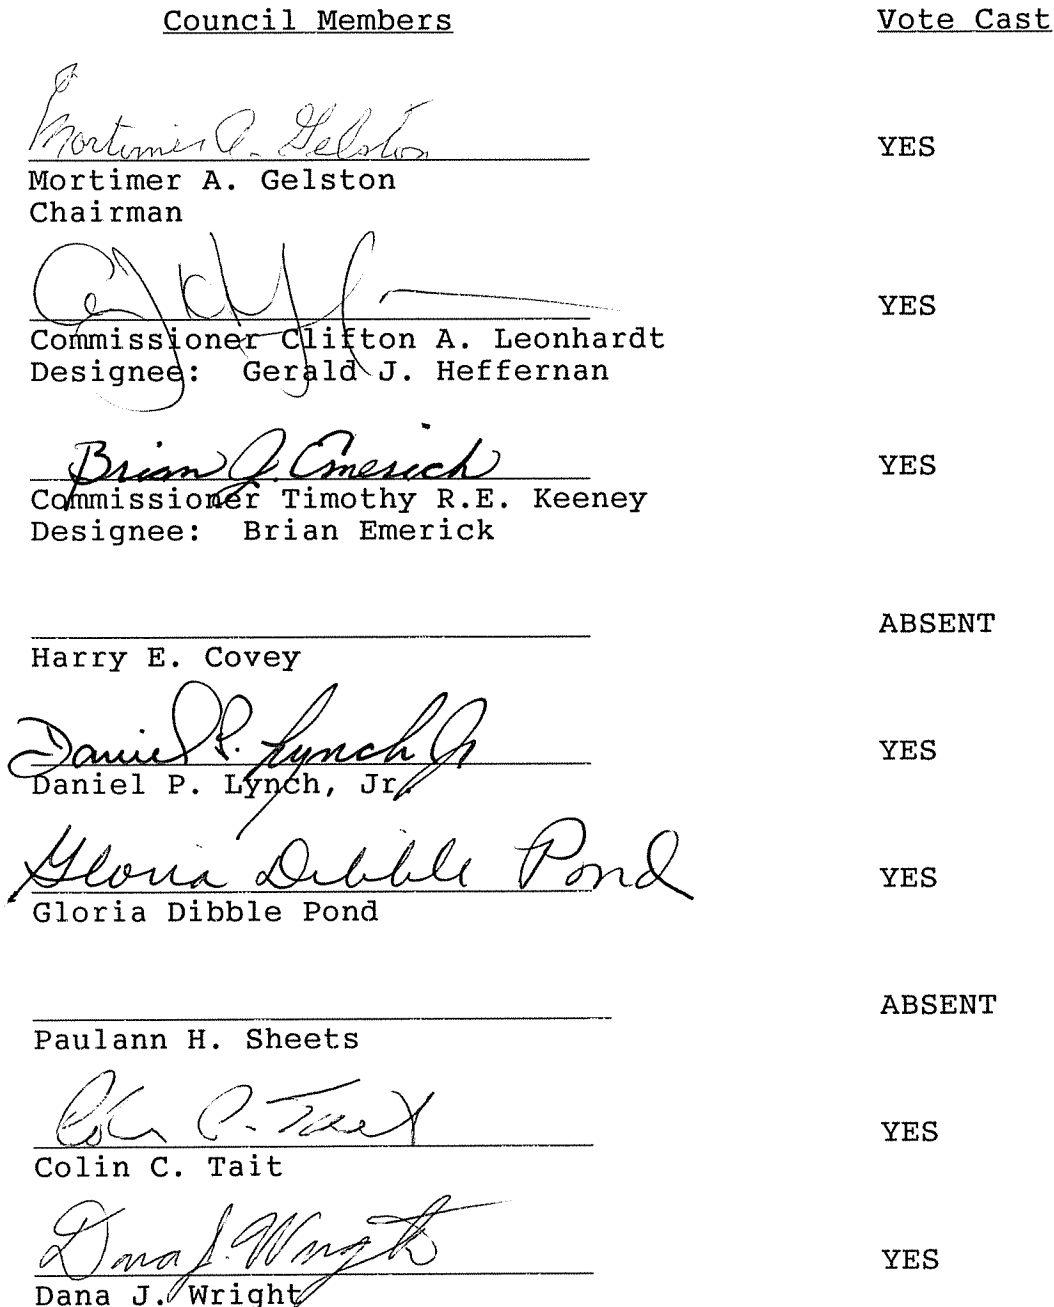 Council Members Vote Cast
Mortimer A. Gelston
YES
Mortimer A. Gelston
Chairman
YES
Commissioner Clifton A. Leonhardt
Designee: Gerald J. Heffernan
Brian J. Emerick
YES
Commissioner Timothy R.E. Keeney
Designee: Brian Emerick
ABSENT
Harry E. Covey
Daniel P. Lynch Jr
YES
Daniel P. Lynch, Jr.
Gloria Dibble Pond
YES
Gloria Dibble Pond
ABSENT
Paulann H. Sheets
Colin C. Tait
YES
Colin C. Tait
Dana J. Wright
YES
Dana J. Wright